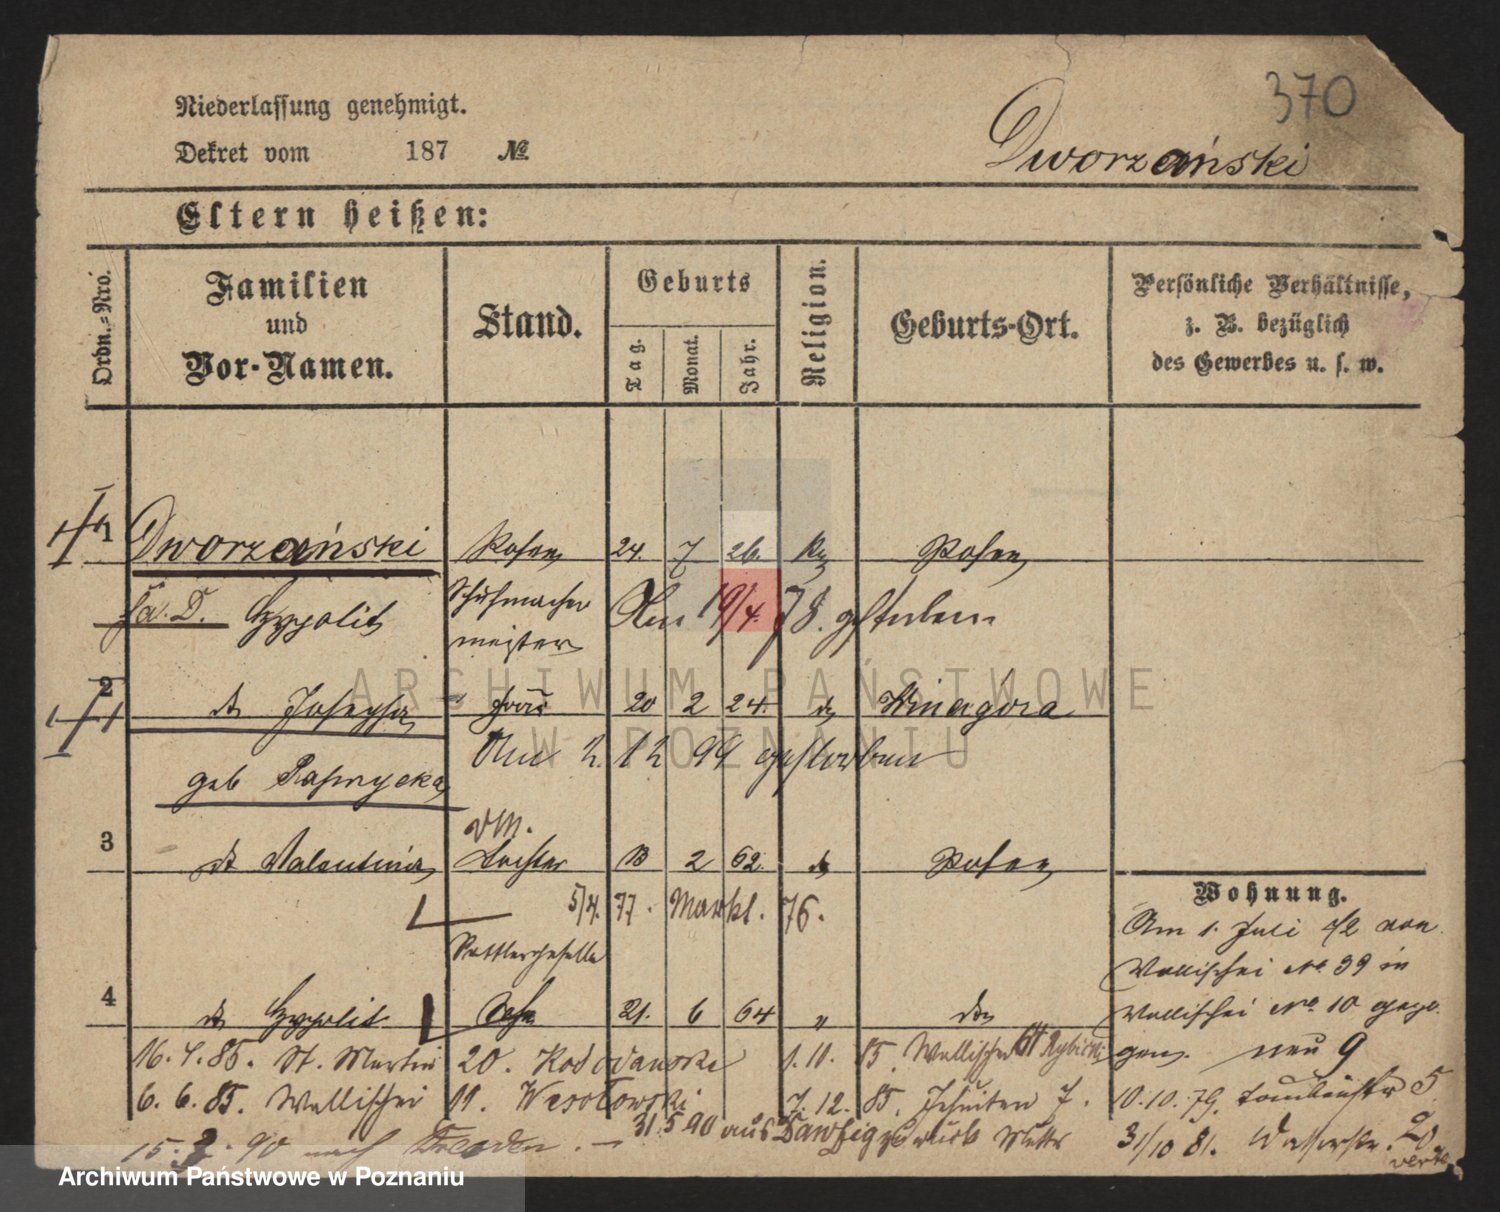 370
Niederlassung genehmigt.
Dekret vom 187 №
Dworzański
Eltern heißen:
Ordn.-Nro.
Familien und Vor-Namen.
Stand.
Geburts
Tag.
Monat.
Jahr.
Religion.
Geburts-Ort.
Persönliche Verhältnisse, z. B. bezüglich des Gewerbes u. s. w.
1 Dworzański Posen 24. 7 26. Posen
Hypolit Schuhmacher Am 19/4. 78. gestorben
meister
2 Josepha Frau 20 2 24. Winagóra
Am 2. 12 99 gestorben
geb
3 Valentina Tochter 13 2 62 Posen
5/4. 77. Markt. 76.
Wohnung.
Am 1. Juli von
Sattlergeselle
Wallischei No 39 in
4 Hypolit Sohn 21. 6 64 "
Wallischei No 10 gezo
gen. neu 9
16. 4. 85. St. Martin 20. 1. 11. 85. Wallischei
6. 6. 85. Wallischei 11. Wesołowski 7. 12. 85. Jesuiten 7.
10. 10. 79. 5
15. 3. 90 nach Dresden. — 31 5 90 aus Danzig zurück Mutter
31/10 81. Wasserstr. 20
ARCHIWUM PAŃSTWOWE
W POZNANIU
Archiwum Państwowe w Poznaniu